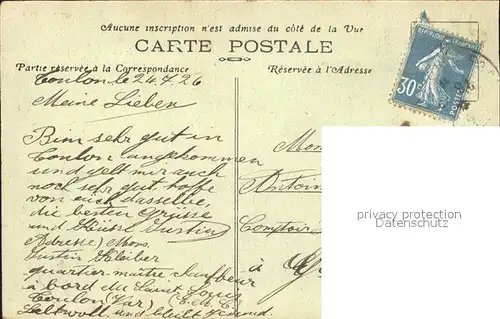 Aucune inscription n'est admise du côté de la Vue
CARTE POSTALE
Partie réservée à la Correspondance
Réservée à l'Adresse
Toulon le 24.7.26
Meine Lieben
Bin sehr gut in
Toulon angekommen
und geht mir auch
noch sehr gut hoffe
von euch dasselbe,
die besten Grüsse
und Küsse Justin
Adresse) Mons.
Justin Kleiber
quartier-maître chauffeur
à bord du Saint Louis
Toulon (Var)
und bleibt gesund
30
POSTES
Antoin
Comptoir
à
privacy protection
Datenschutz